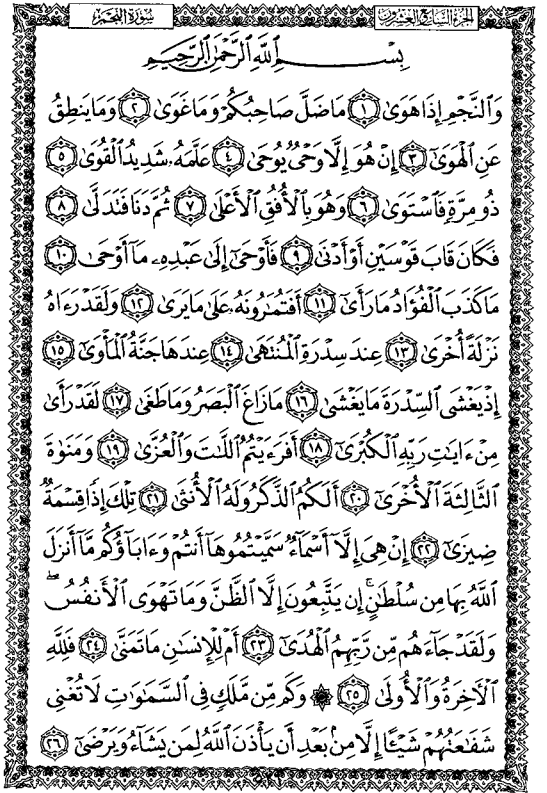 سُورَةُ النَّجْمِ
الجزء السابع والعشرون
بِسْمِ ٱللَّهِ ٱلرَّحْمَٰنِ ٱلرَّحِيمِ
وَٱلنَّجْمِ إِذَا هَوَىٰ ١ مَا ضَلَّ صَاحِبُكُمْ وَمَا غَوَىٰ ٢ وَمَا يَنطِقُ
عَنِ ٱلْهَوَىٰ ٣ إِنْ هُوَ إِلَّا وَحْىٌ يُوحَىٰ ٤ عَلَّمَهُۥ شَدِيدُ ٱلْقُوَىٰ ٥
ذُو مِرَّةٍ فَٱسْتَوَىٰ ٦ وَهُوَ بِٱلْأُفُقِ ٱلْأَعْلَىٰ ٧ ثُمَّ دَنَا فَتَدَلَّىٰ ٨
فَكَانَ قَابَ قَوْسَيْنِ أَوْ أَدْنَىٰ ٩ فَأَوْحَىٰٓ إِلَىٰ عَبْدِهِۦ مَآ أَوْحَىٰ ١٠
مَا كَذَبَ ٱلْفُؤَادُ مَا رَأَىٰٓ ١١ أَفَتُمَٰرُونَهُۥ عَلَىٰ مَا يَرَىٰ ١٢ وَلَقَدْ رَءَاهُ
نَزْلَةً أُخْرَىٰ ١٣ عِندَ سِدْرَةِ ٱلْمُنتَهَىٰ ١٤ عِندَهَا جَنَّةُ ٱلْمَأْوَىٰٓ ١٥
إِذْ يَغْشَى ٱلسِّدْرَةَ مَا يَغْشَىٰ ١٦ مَا زَاغَ ٱلْبَصَرُ وَمَا طَغَىٰ ١٧ لَقَدْ رَأَىٰ
مِنْ ءَايَٰتِ رَبِّهِ ٱلْكُبْرَىٰٓ ١٨ أَفَرَءَيْتُمُ ٱللَّٰتَ وَٱلْعُزَّىٰ ١٩ وَمَنَوٰةَ
ٱلثَّالِثَةَ ٱلْأُخْرَىٰٓ ٢٠ أَلَكُمُ ٱلذَّكَرُ وَلَهُ ٱلْأُنثَىٰ ٢١ تِلْكَ إِذًا قِسْمَةٌ
ضِيزَىٰٓ ٢٢ إِنْ هِىَ إِلَّآ أَسْمَآءٌ سَمَّيْتُمُوهَآ أَنتُمْ وَءَابَآؤُكُم مَّآ أَنزَلَ
ٱللَّهُ بِهَا مِن سُلْطَٰنٍ ۚ إِن يَتَّبِعُونَ إِلَّا ٱلظَّنَّ وَمَا تَهْوَى ٱلْأَنفُسُ ۖ
وَلَقَدْ جَآءَهُم مِّن رَّبِّهِمُ ٱلْهُدَىٰٓ ٢٣ أَمْ لِلْإِنسَٰنِ مَا تَمَنَّىٰ ٢٤ فَلِلَّهِ
ٱلْءَاخِرَةُ وَٱلْأُولَىٰ ٢٥ ۞ وَكَم مِّن مَّلَكٍ فِى ٱلسَّمَٰوَٰتِ لَا تُغْنِى
شَفَٰعَتُهُمْ شَيْـًٔا إِلَّا مِنۢ بَعْدِ أَن يَأْذَنَ ٱللَّهُ لِمَن يَشَآءُ وَيَرْضَىٰٓ ٢٦